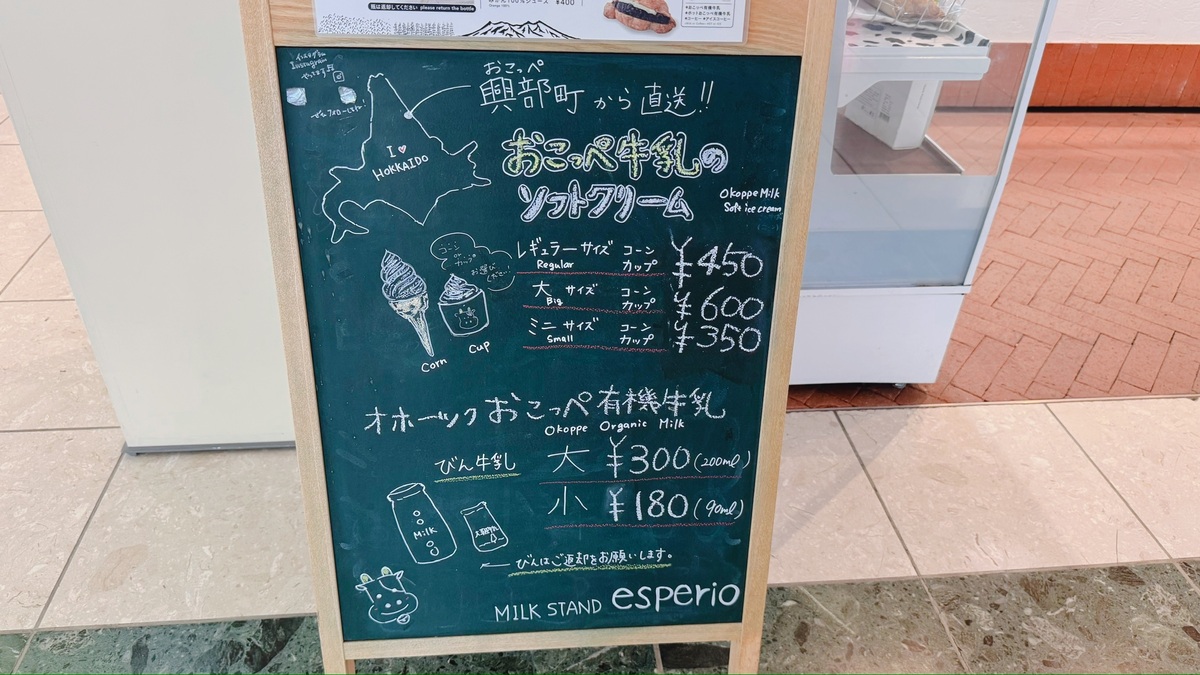 瓶は返却してください please return the bottle
100%ジュース ¥400
インスタグラム
Instagram
やってます
ぜひフォローしてネ!
おこっぺ
興部町から直送!!
I ♥
HOKKAIDO
おこっぺ牛乳の
ソフトクリーム
Okoppe Milk
Soft ice cream
コーン
or
カップ
お選び
ください
レギュラーサイズ コーン ¥450
Regular カップ
大サイズ コーン ¥600
Big カップ
ミニサイズ コーン ¥350
Small カップ
Corn
Cup
オホーツクおこっぺ有機牛乳
Okoppe Organic Milk
びん牛乳 大 ¥300(200ml)
小 ¥180(90ml)
Milk
←びんはご返却をお願いします。
MILK STAND esperio